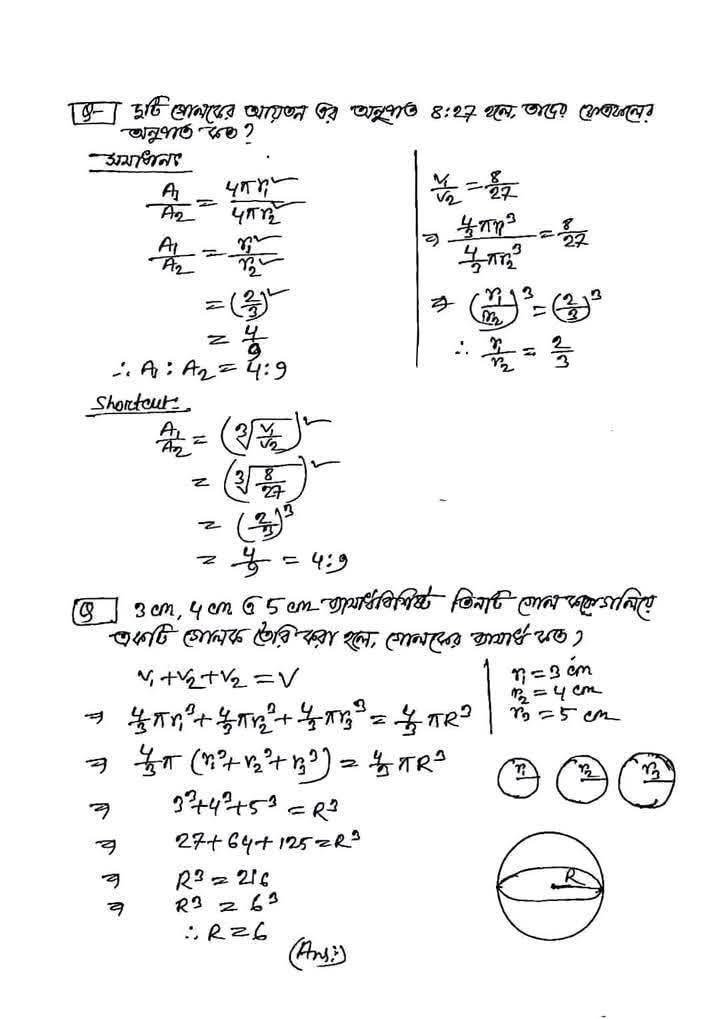 Q- দুটি গোলকের আয়তন এর অনুপাত 8:27 হলে, তাদের ক্ষেত্রফলের
অনুপাত কত?
সমাধানঃ
A₁/A₂ = 4πr₁²/4πr₂²
A₁/A₂ = r₁²/r₂²
= (2/3)²
= 4/9
∴ A₁ : A₂ = 4:9
V₁/V₂ = 8/27
⇒ (4/3 πr₁³)/(4/3 πr₂³) = 8/27
⇒ (r₁/r₂)³ = (2/3)³
∴ r₁/r₂ = 2/3
Shortcut:
A₁/A₂ = (∛(V₁/V₂))²
= (∛(8/27))²
= (2/3)³
= 4/9 = 4:9
Q 3 cm, 4 cm ও 5 cm ব্যাসার্ধবিশিষ্ট তিনটি গোলককে গালিয়ে
একটি গোলক তৈরি করা হলে, গোলকের ব্যাসার্ধ কত?
V₁+V₂+V₂ = V
⇒ 4/3 πr₁³ + 4/3 πr₂³ + 4/3 πr₃³ = 4/3 πR³
⇒ 4/3 π (r₁³+r₂³+r₃³) = 4/3 πR³
⇒ 3³+4³+5³ = R³
⇒ 27+64+125 = R³
⇒ R³ = 216
⇒ R³ = 6³
∴ R = 6
(Ans:)
r₁ = 3 cm
r₂ = 4 cm
r₃ = 5 cm
r₁ r₂ r₃
R